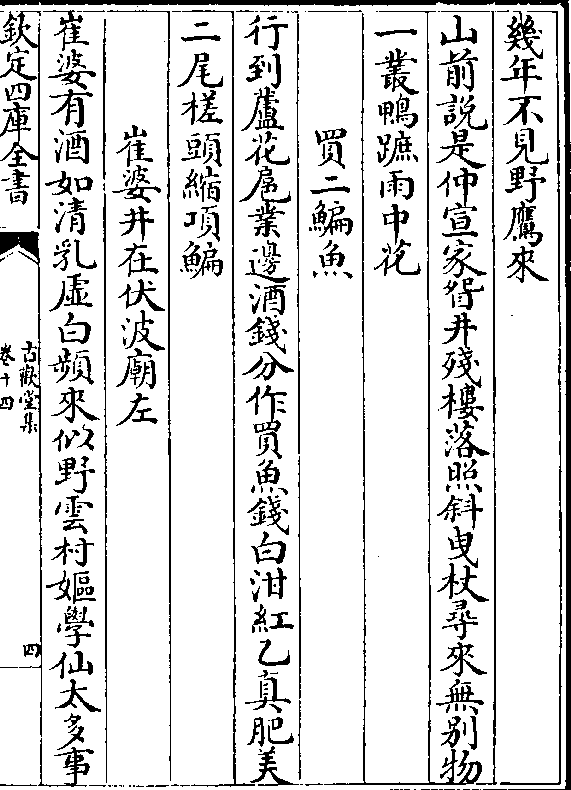 幾年不見野鷹來
山前説是仲宣家眢井殘樓落照斜曳杖尋來無别物
一叢鴨蹠雨中花
買二鯿魚
行到蘆花扈業邊酒錢分作買魚錢白泔紅乙真肥美
二尾槎頭縮項鯿
崔婆井在伏波廟左
崔婆有酒如清乳虚白頻來似野雲村嫗學仙太多事
欽定四庫全書
古歡堂集
卷十四
四